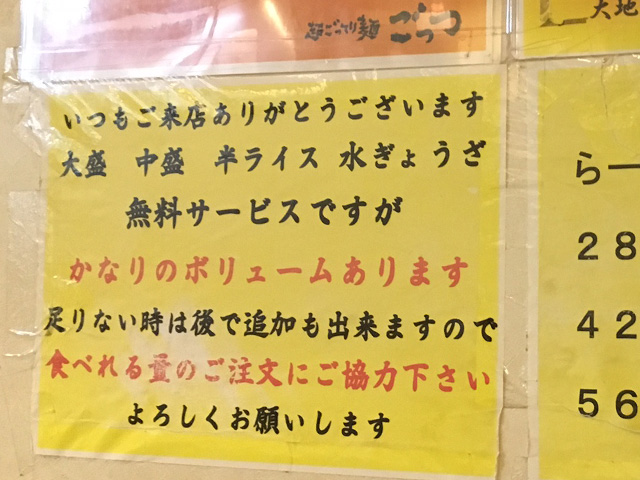 超ごってり麺 ごっつ
大地
いつもご来店ありがとうございます
大盛 中盛 半ライス 水ぎょうざ
無料サービスですが
かなりのボリュームあります
足りない時は後で追加も出来ますので
食べれる量のご注文にご協力下さい
よろしくお願いします
らー
28
42
56